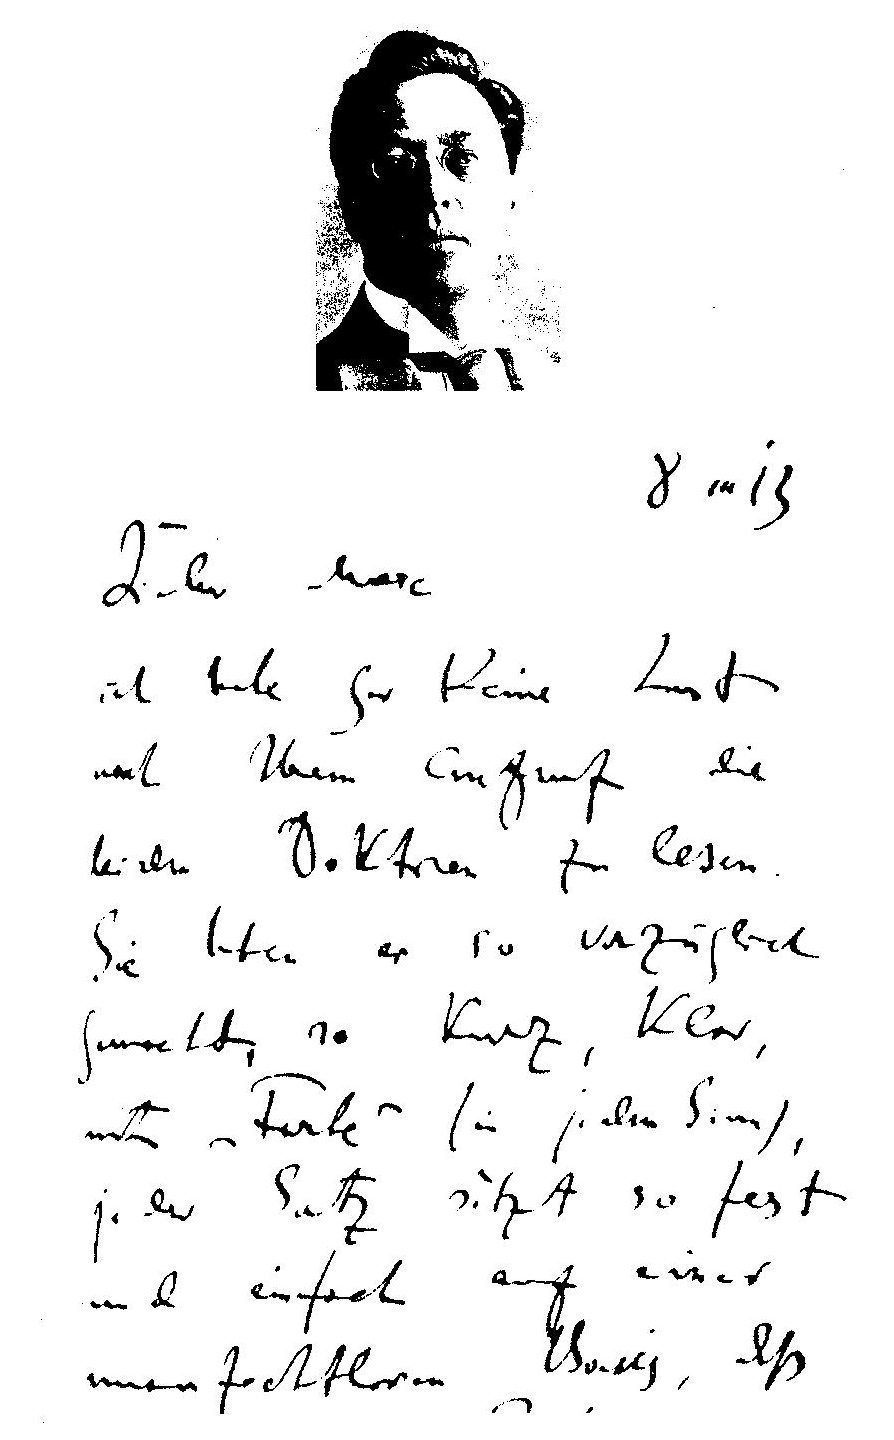 8 III 13
Lieber Marc
ich habe gar keine Lust
nach Ihrem Aufruf die
beiden Doktoren zu lesen.
Sie haben es so vorzüglich
gemacht, so Kurz, Klar,
mit „Farbe“ (in jedem Sinn),
jeder Satz sitzt so fest
und einfach auf einer
unanfechtbaren Basis, dß